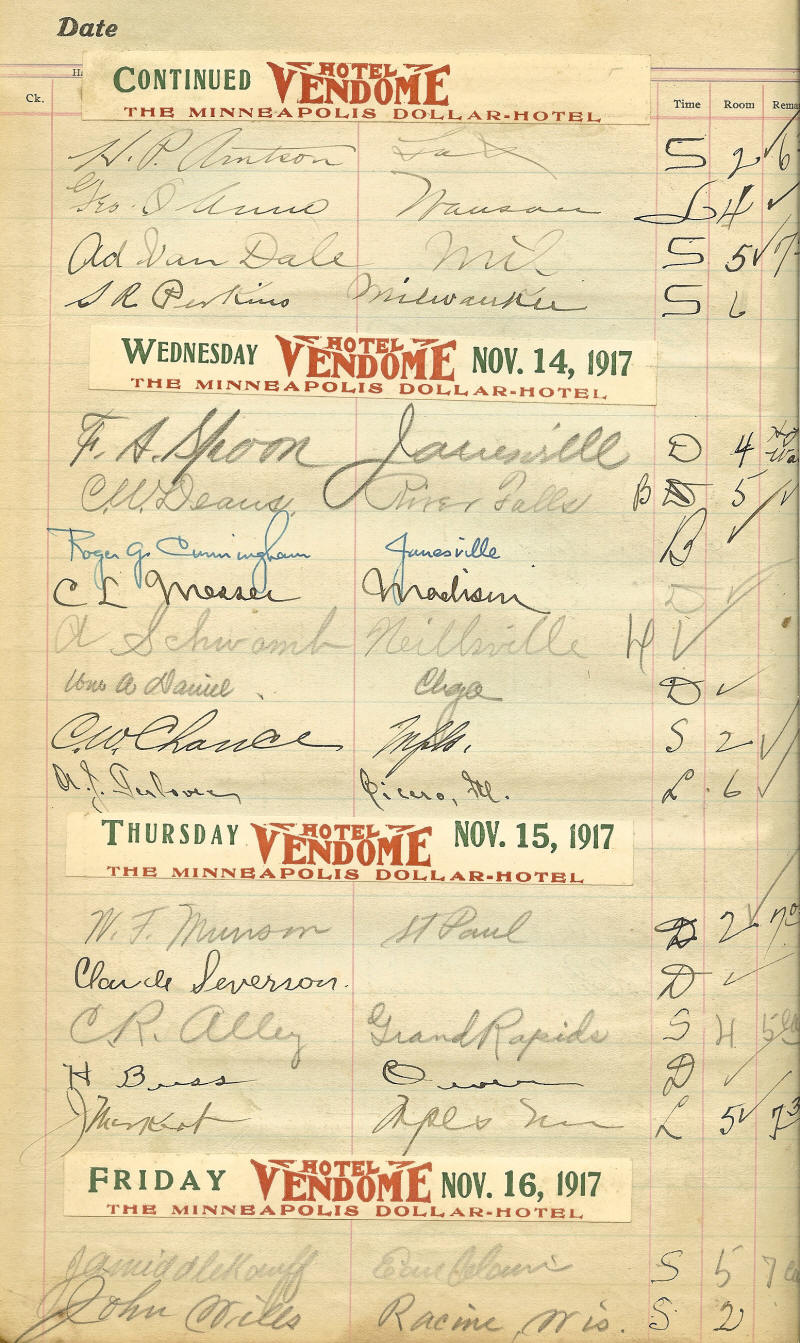 Date
Ck.
CONTINUED HOTEL VENDOME
THE MINNEAPOLIS DOLLAR-HOTEL
Time Room Rema
H. P. Amtson La X S 2 6
Geo. Wausau L 4
Ad Van Dale Mil S 5 7
S R Perkins Milwaukee S 6
WEDNESDAY HOTEL VENDOME NOV. 14, 1917
THE MINNEAPOLIS DOLLAR-HOTEL
F. A. Spoon Janesville D 4
C. W. Deans River Falls B D 5
Roger G. Cunningham Janesville B
C L Messer Madison D
A Schwamb Neillsville
Wm A Daniel Chgo D
C. W. Chance Mpls. S 2
A. J. Cicero, Ill. L 6
THURSDAY HOTEL VENDOME NOV. 15, 1917
THE MINNEAPOLIS DOLLAR-HOTEL
W. F. Munson St Paul D 2 7
Claude Severson. D
C. R. Alley Grand Rapids S 4 5
H Buss Owen D
J Mpls L 5 7
FRIDAY HOTEL VENDOME NOV. 16, 1917
THE MINNEAPOLIS DOLLAR-HOTEL
J A Middlekauff Eau Claire S 5 7
John Wills Racine, Wis. S 2